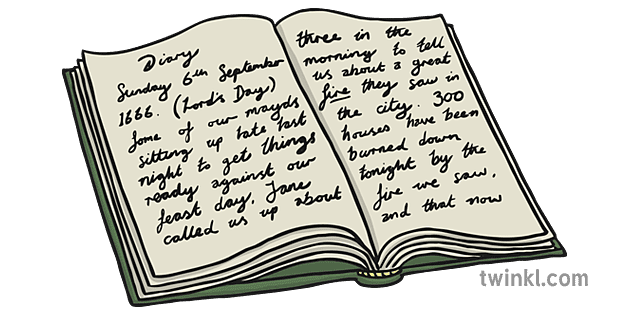 Diary
Sunday 6th September
1666. (Lord's Day)
Some of our mayds
sitting up late last
night to get things
ready against our
feast day, Jane
called us up about
three in the
morning to tell
us about a great
fire they saw in
the city. 300
houses have been
burned down
tonight by the
fire we saw,
and that now
twinkl.com